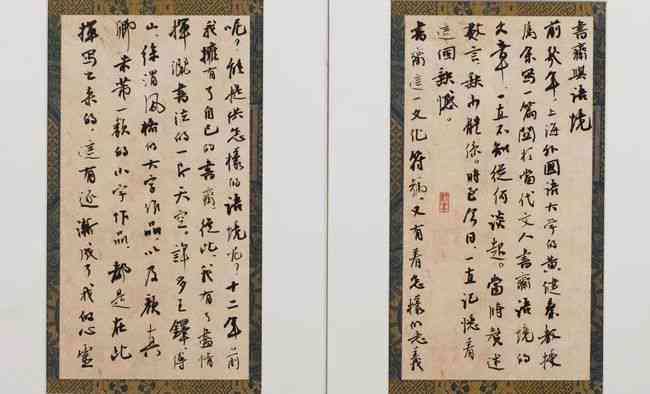 書齋與語境
前幾年，上海外國語大學的黃健秦教授
囑余寫一篇關於當代文人書齋語境的
文章，一直不知從何談起。當時贅述
數言，缺少體係。時至今日一直記憶着
這個缺憾。
書齋這一文化符號，又有着怎樣的意義
呢？能提供怎樣的語境呢？十二年前
我擁有了自己的書齋，從此，我有了盡情
揮灑書法的一片天空。許多王鐸傅
山、徐渭風格的大字作品，以及顏真
卿米芾一類的小字作品，都是在此
揮寫出來的，這有逐漸成了我的心靈